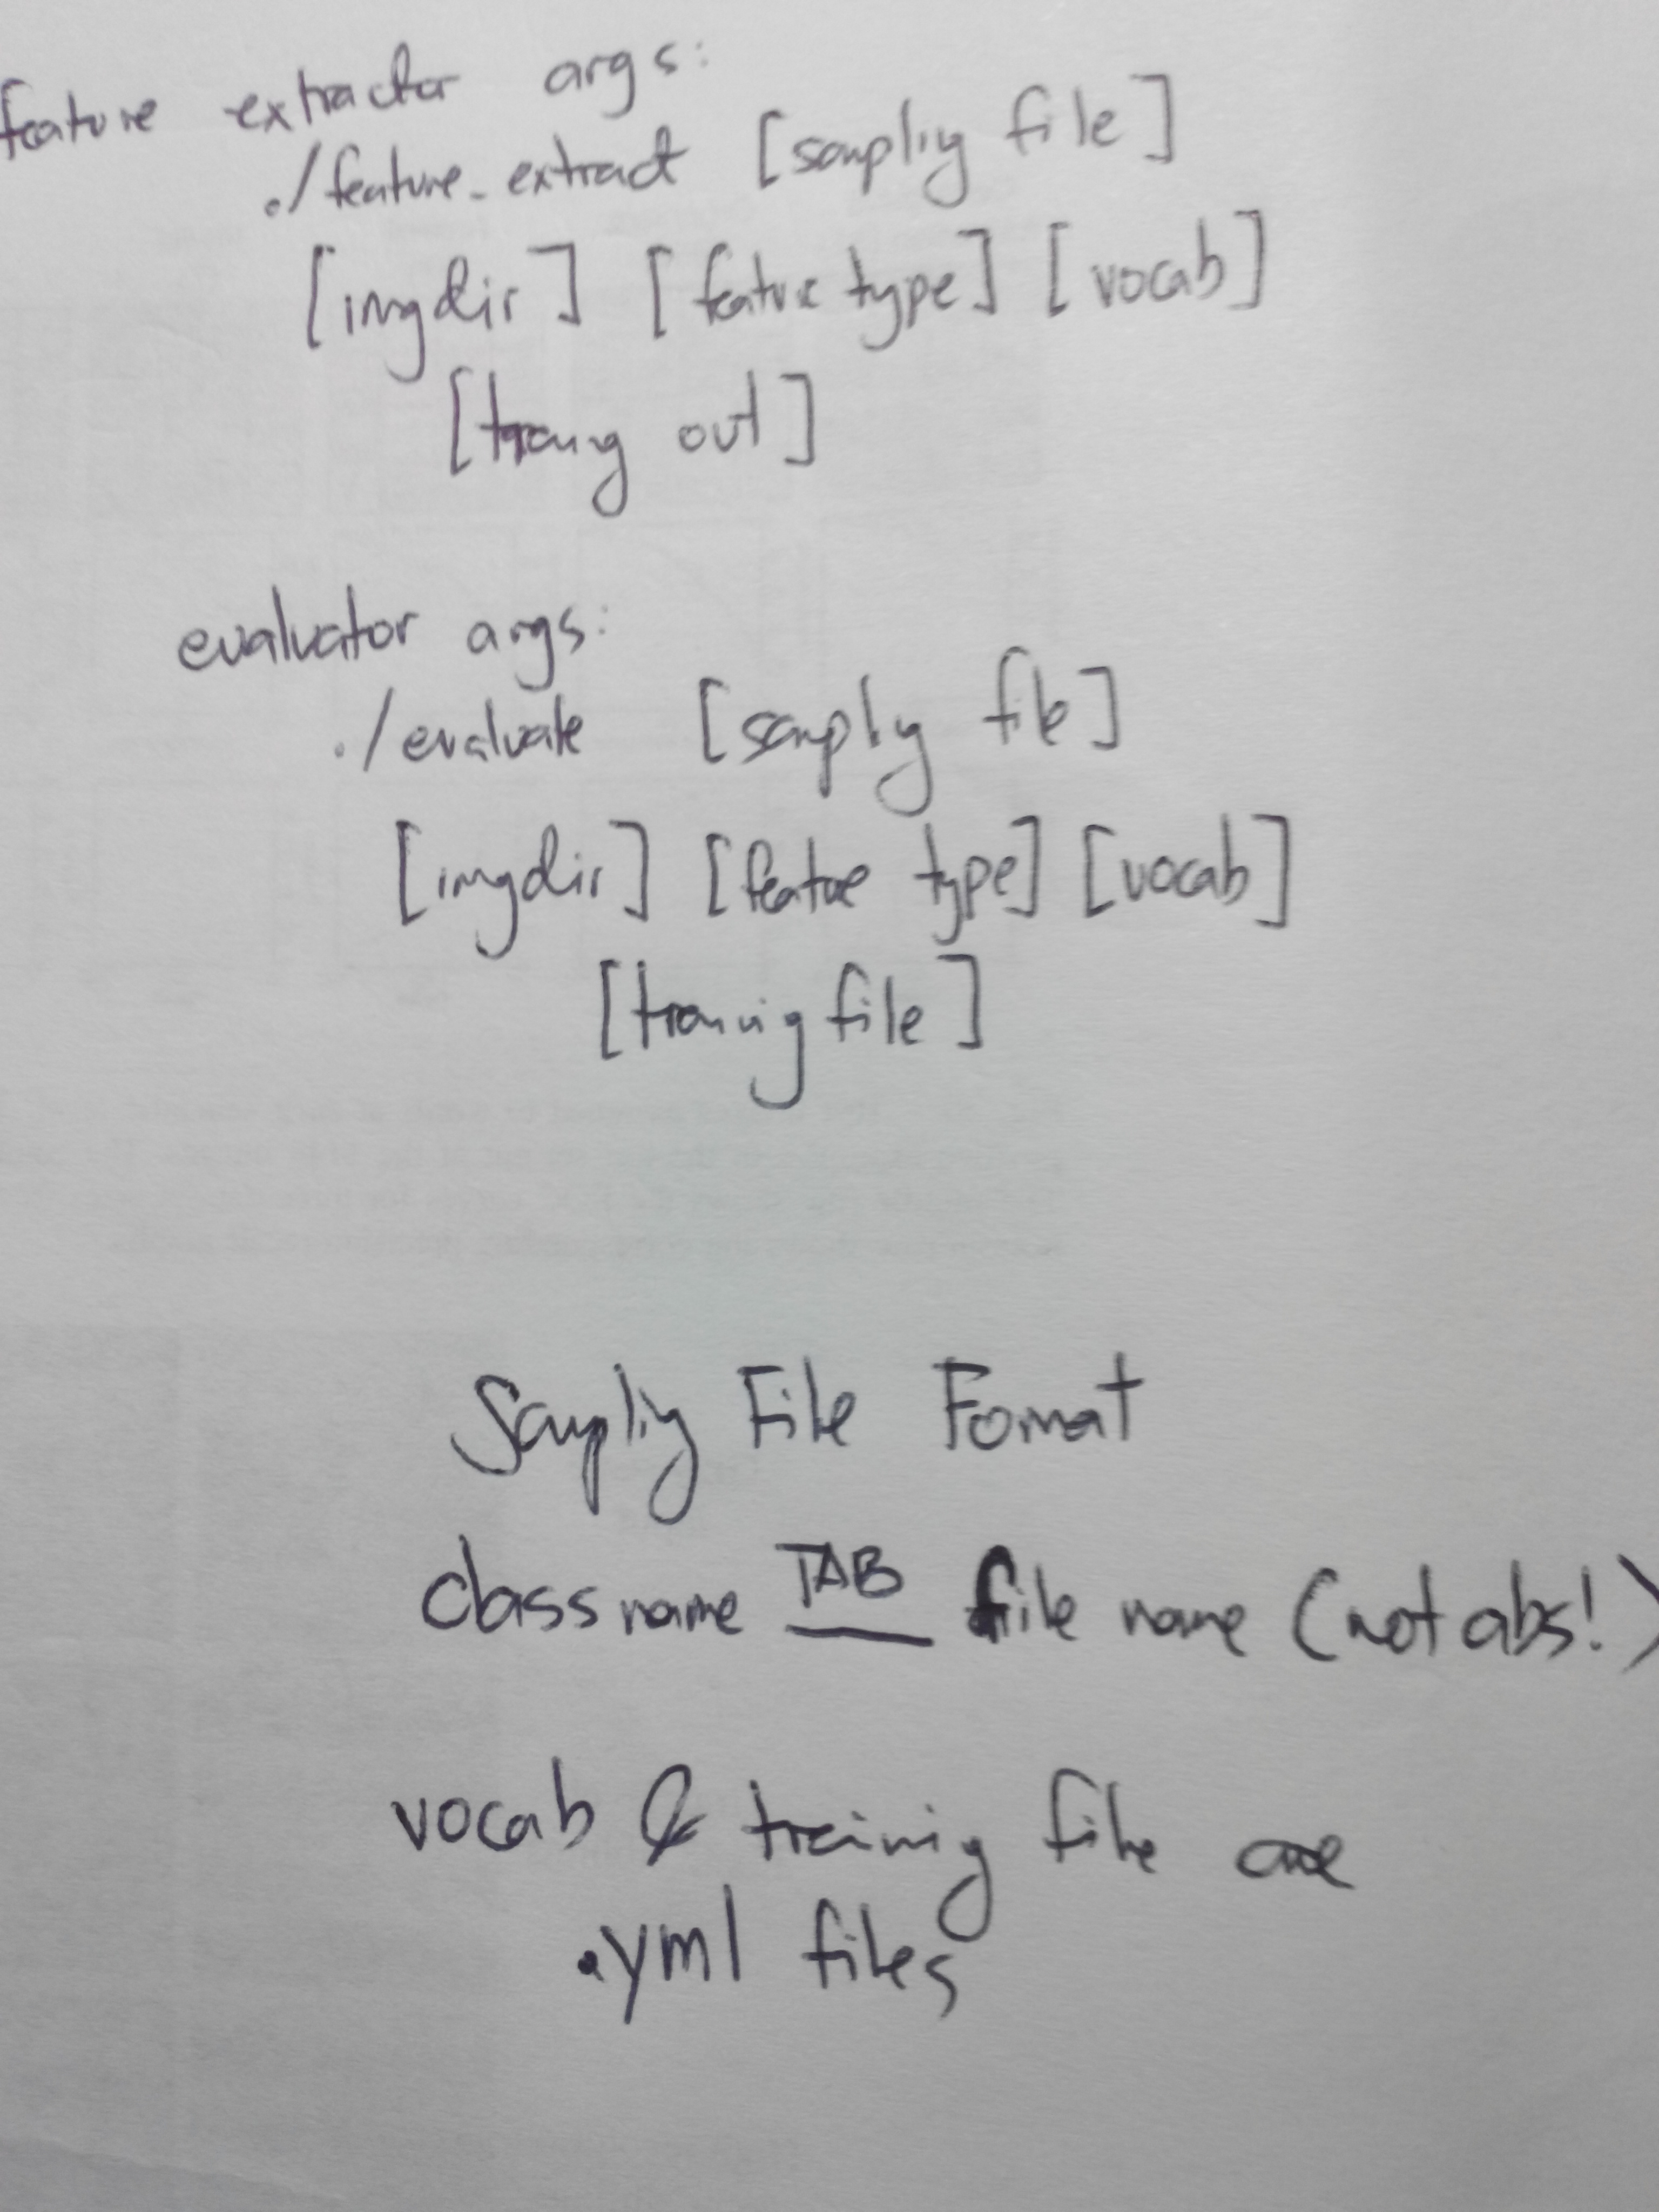 feature extractor args:
./feature_extract [sampling file]
[imgdir] [feature type] [vocab]
[training out]
evaluator args:
./evaluate [sampling file]
[imgdir] [feature type] [vocab]
[training file]
Sampling File Format
class name TAB file name (not abs!)
vocab & training file are
.yml files